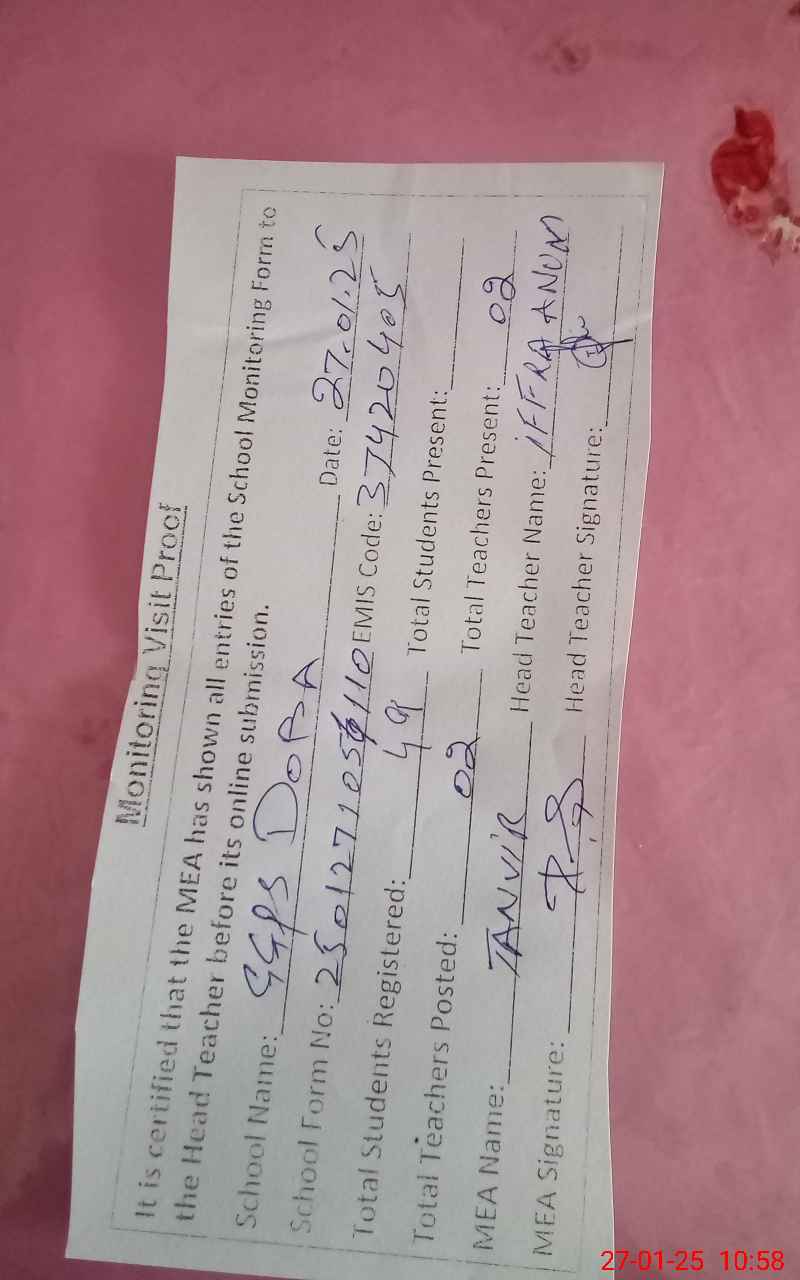 Monitoring Visit Proof
It is certified that the MEA has shown all entries of the School Monitoring Form to
the Head Teacher before its online submission.
School Name: GGPS DOBA Date: 27.01.25
School Form No: 2501271056110 EMIS Code: 37420405
Total Students Registered: 49 Total Students Present:
Total Teachers Posted: 02 Total Teachers Present: 02
MEA Name: TANVIR Head Teacher Name: IFFRA ANUM
MEA Signature: Head Teacher Signature:
27-01-25 10:58